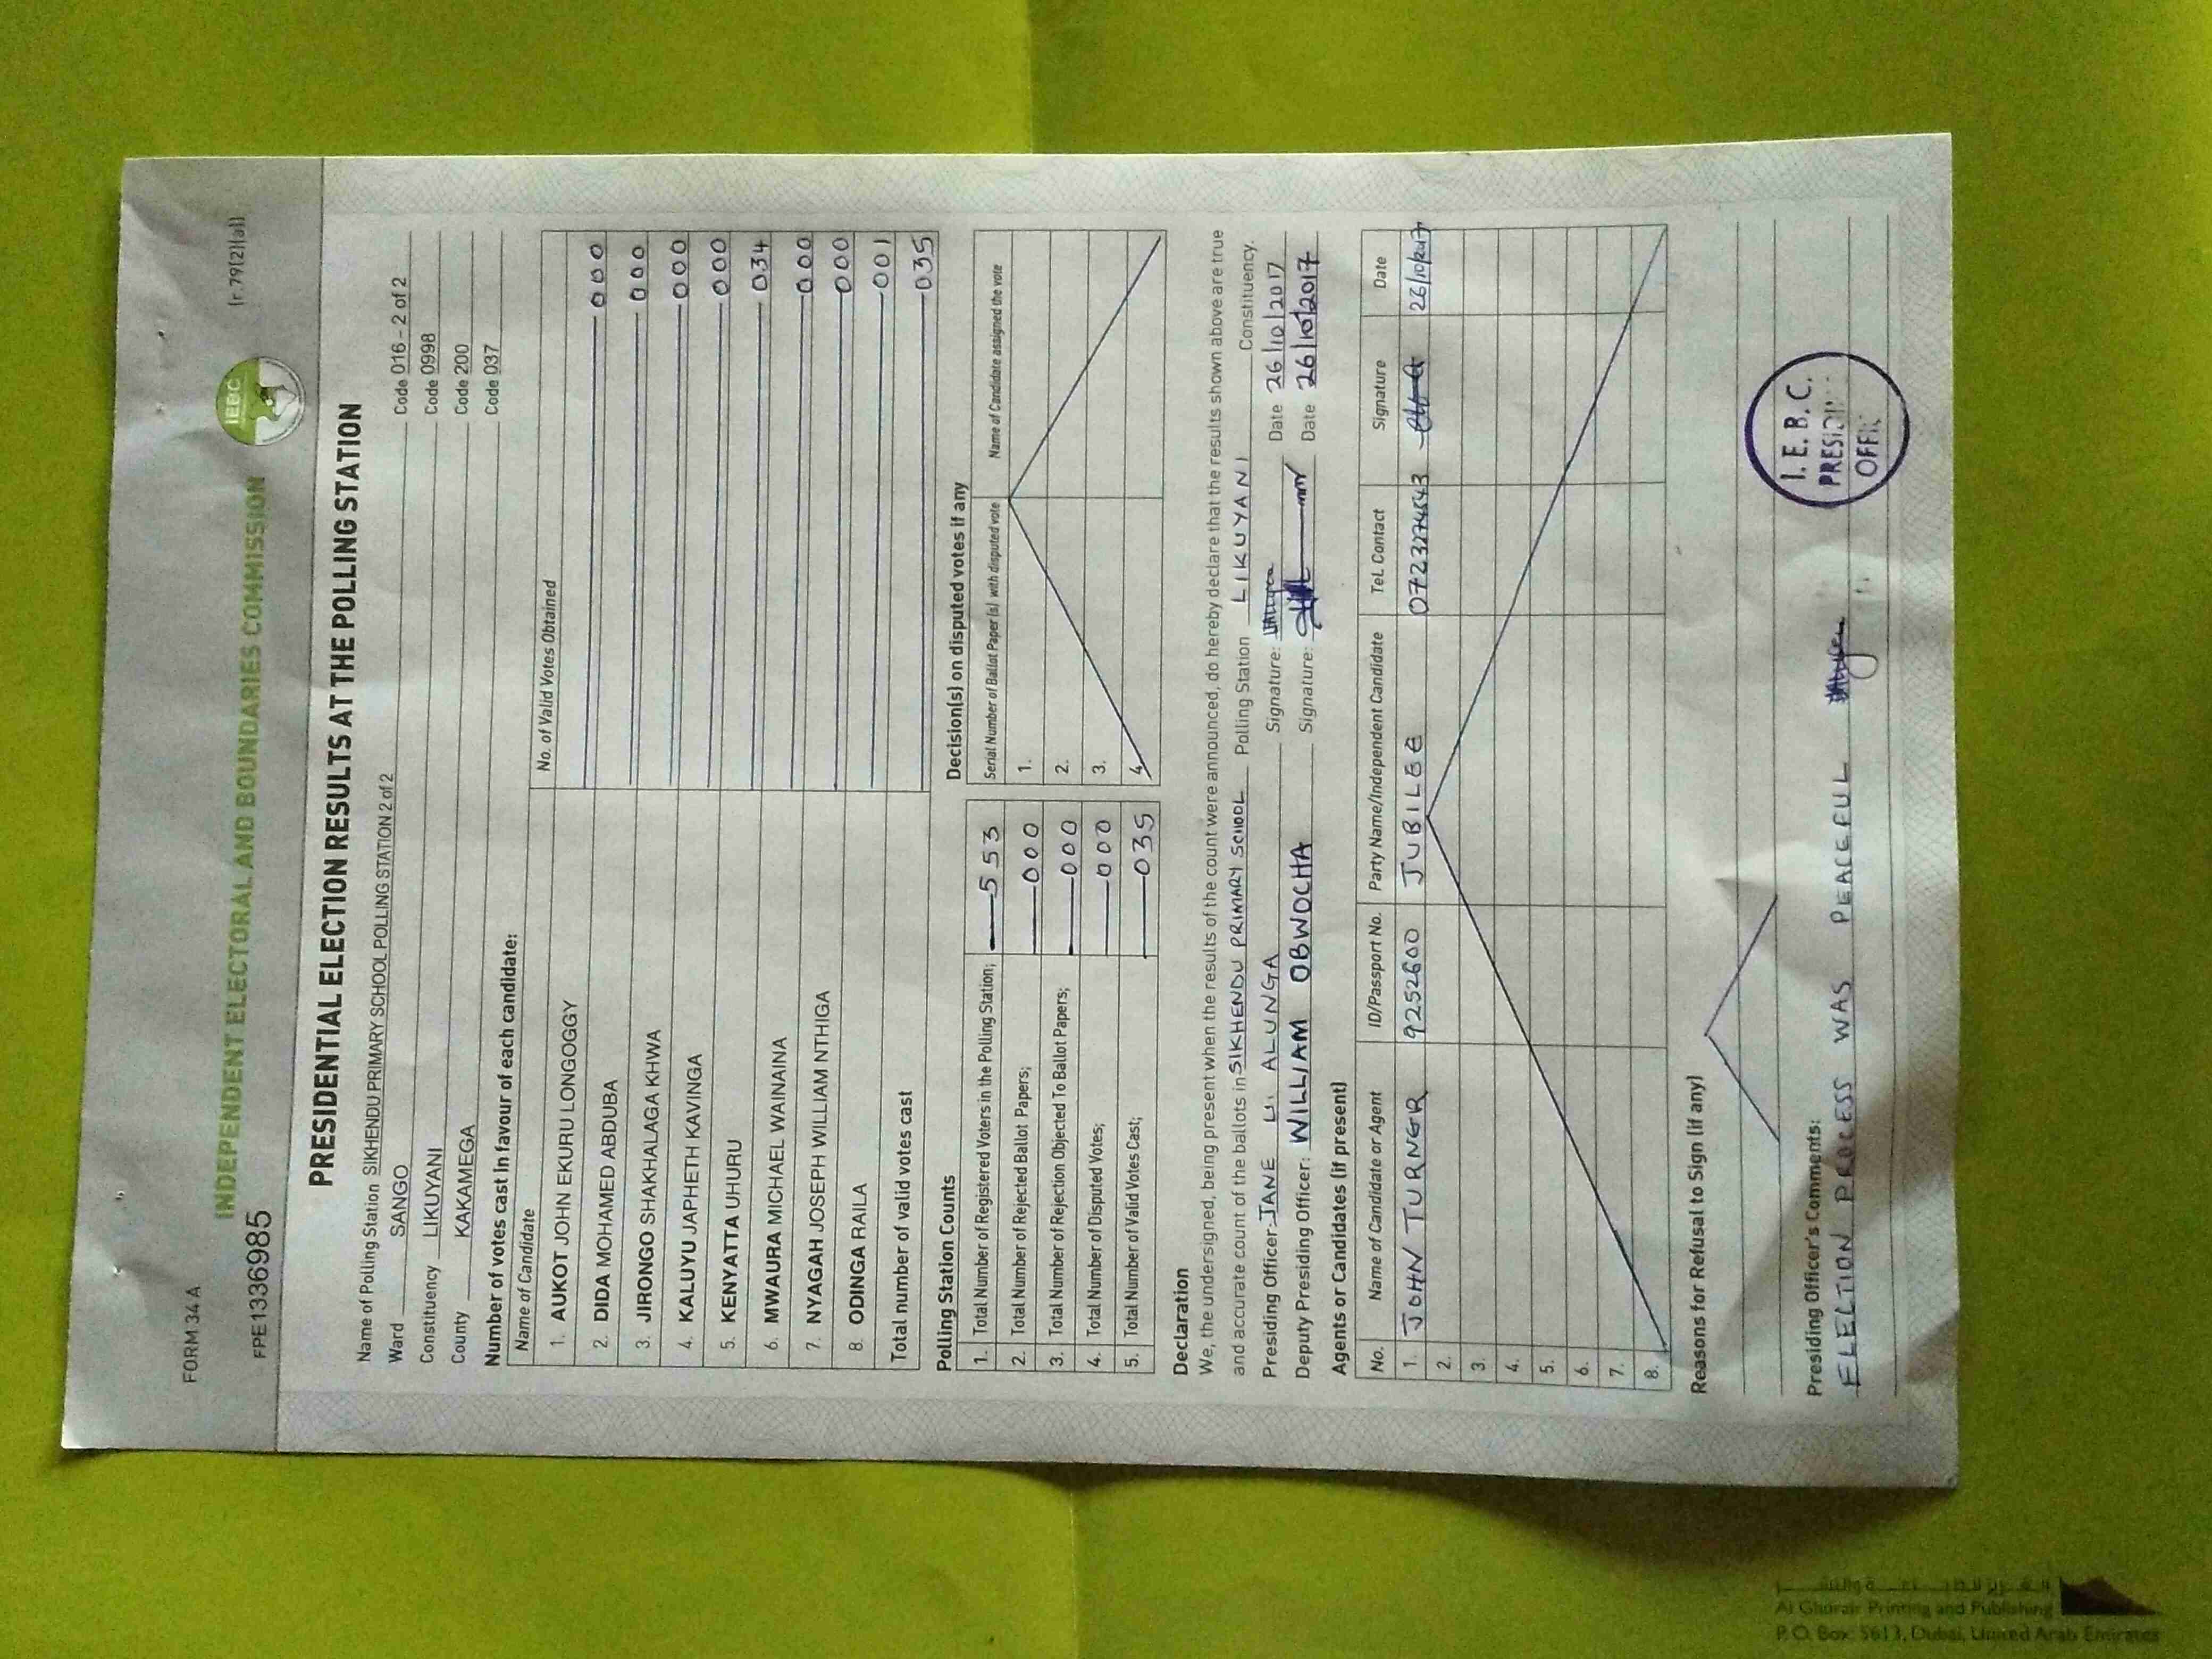 FORM 34 A
INDEPENDENT ELECTORAL AND BOUNDARIES COMMISSION IEBC (r.79(2)(a))
FPE1336985
PRESIDENTIAL ELECTION RESULTS AT THE POLLING STATION
Name of Polling Station SIKHENDU PRIMARY SCHOOL POLLING STATION 2 of 2 Code 016 - 2 of 2
Ward SANGO Code 0998
Constituency LIKUYANI Code 200
County KAKAMEGA Code 037
Number of votes cast in favour of each candidate:
Name of Candidate No. of Valid Votes Obtained
1. AUKOT JOHN EKURU LONGOGGY 000
2. DIDA MOHAMED ABDUBA 000
3. JIRONGO SHAKHALAGA KHWA 000
4. KALUYU JAPHETH KAVINGA 000
5. KENYATTA UHURU 034
6. MWAURA MICHAEL WAINAINA 000
7. NYAGAH JOSEPH WILLIAM NTHIGA 000
8. ODINGA RAILA 001
Total number of valid votes cast 035
Polling Station Counts
1. Total Number of Registered Voters in the Polling Station; 553
2. Total Number of Rejected Ballot Papers; 000
3. Total Number of Rejection Objected To Ballot Papers; 000
4. Total Number of Disputed Votes; 000
5. Total Number of Valid Votes Cast; 035
Decision(s) on disputed votes if any
Serial Number of Ballot Paper (s) with disputed vote Name of Candidate assigned the vote
1.
2.
3.
4.
Declaration
We, the undersigned, being present when the results of the count were announced, do hereby declare that the results shown above are true
and accurate count of the ballots in SIKHENDU PRIMARY SCHOOL Polling Station LIKUYANI Constituency.
Presiding Officer: JANE U. ALUNGA Signature: Date 26/10/2017
Deputy Presiding Officer: WILLIAM OBWOCHA Signature: Date 26/10/2017
Agents or Candidates (if present)
No. Name of Candidate or Agent ID/Passport No. Party Name/Independent Candidate Tel. Contact Signature Date
1. JOHN TURNER 9252600 JUBILEE 26/10/2017
2.
3.
4.
5.
6.
7.
8.
Reasons for Refusal to Sign (if any)
Presiding Officer's Comments:
ELECTION PROCESS WAS PEACEFUL
I.E.B.C.
Al Ghurair Printing and Publishing
P.O. Box: 5613, Dubai, United Arab Emirates